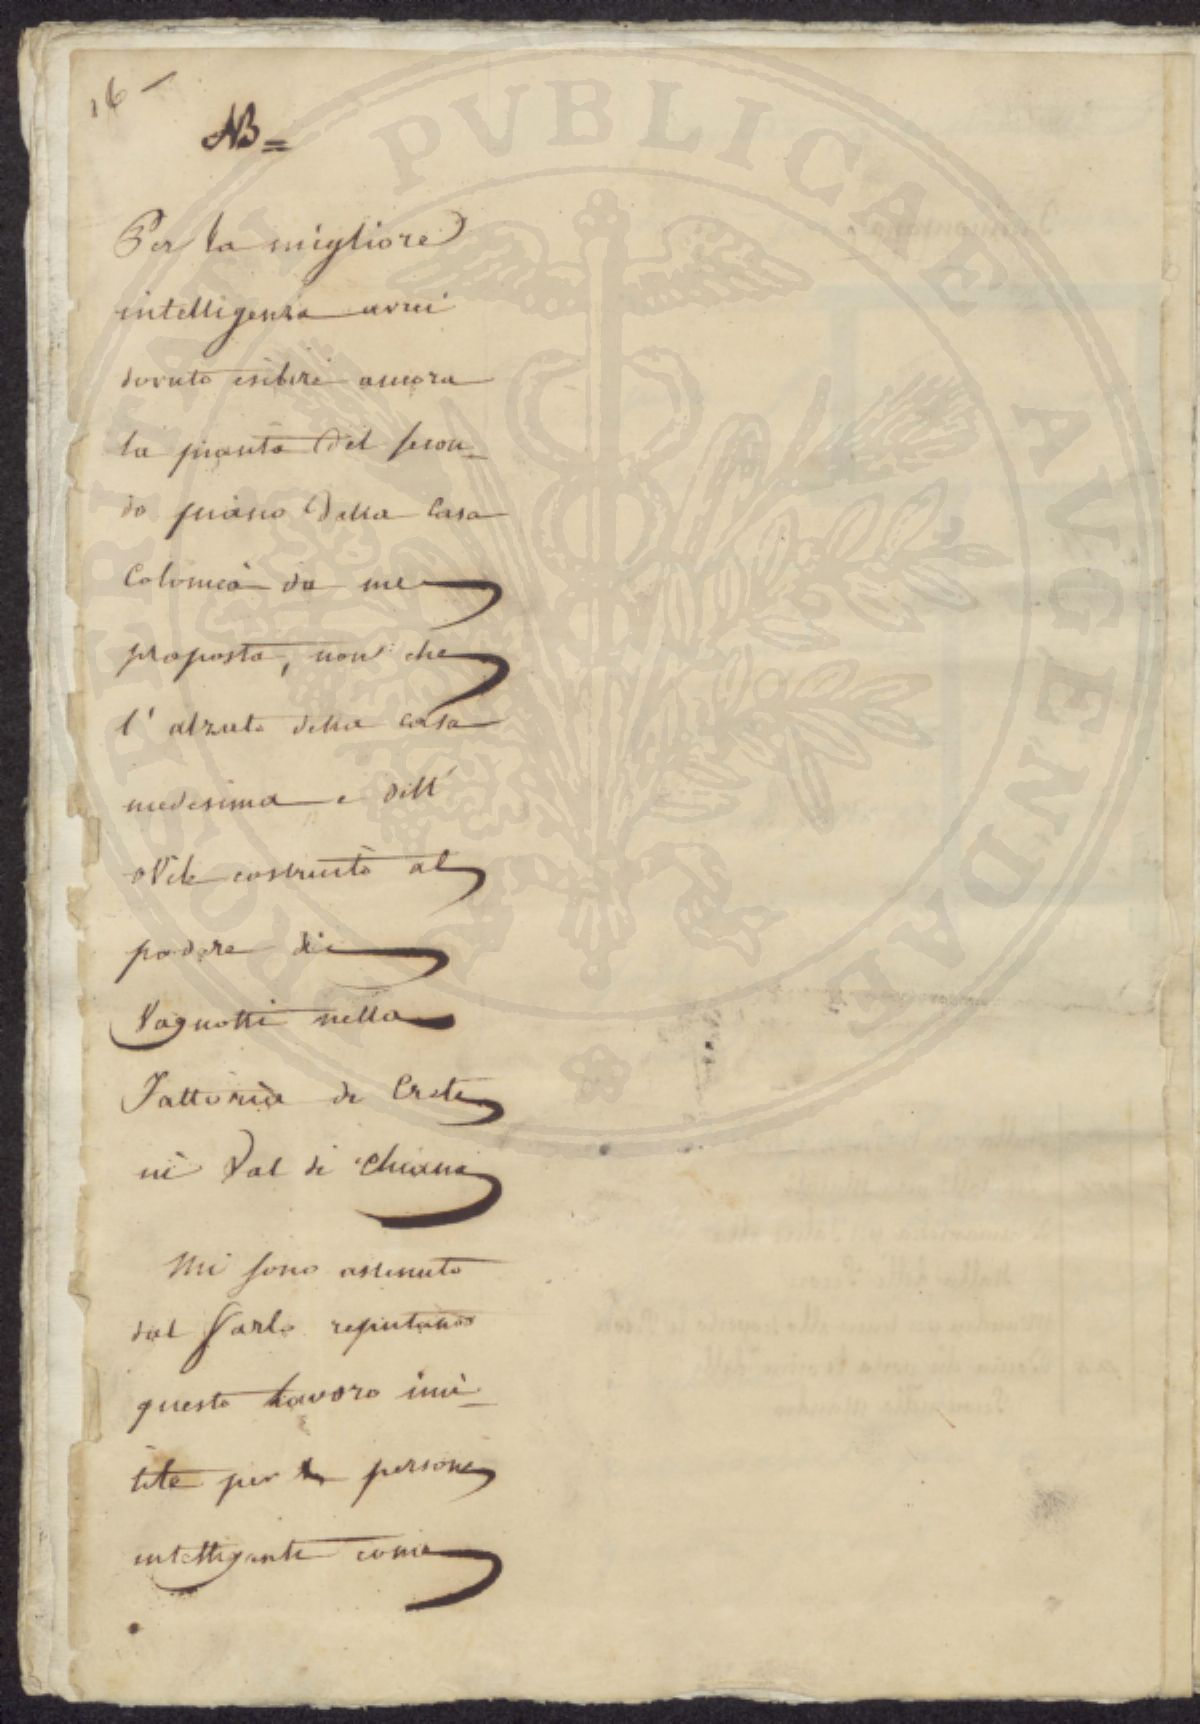 16 —
NB =
Per la migliore
intelligenza avrei
dovuto esibire ancora
la pianta del secon_
do piano della Casa
Colonica da me
proposta, non che
l' alzato della casa
medesima e dell'
ovile costruito al
podere di
Vagnotti nella
Fattoria di Creti
in Val di Chiana
Mi sono astenuto
dal farlo reputando
questo lavoro inu_
tile per le persone
intelligenti come
PROSPERITATI PVBLICAE AVGENDAE